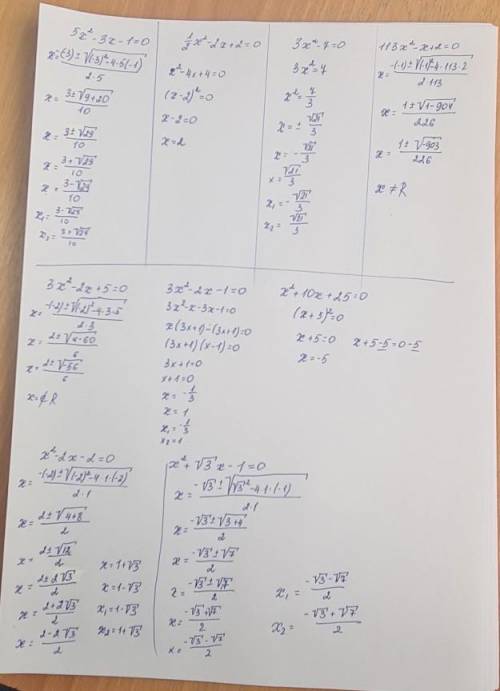 5x²-3x-1=0
x=-(-3)±√(-3)²-4·5(-1) / 2·5
x=3±√9+20 / 10
x=3±√29 / 10
x=3+√29 / 10
x=3-√29 / 10
x₁=3-√29 / 10
x₂=3+√29 / 10
1/2x²-2x+2=0
x²-4x+4=0
(x-2)²=0
x-2=0
x=2
3x²-7=0
3x²=7
x²=7/3
x=±√21/3
x=-√21/3
x=√21/3
x₁=-√21/3
x₂=√21/3
113x²-x+2=0
x=-(-1)±√(-1)²-4·113·2 / 2·113
x=1±√1-904 / 226
x=1±√-903 / 226
x≠R
3x²-2x+5=0
x=-(-2)±√(-2)²-4·3·5 / 2·3
x=2±√4-60 / 6
x=2±√-56 / 6
x=∉R
3x²-2x-1=0
3x²-x-3x-1=0
x(3x+1)-(3x+1)=0
(3x+1)(x-1)=0
3x+1=0
x+1=0
x=-1/3
x=1
x₁=-1/3
x₂=1
x²+10x+25=0
(x+5)²=0
x+5=0 x+5-5=0-5
x=-5
x²-2x-2=0
x=-(-2)±√(-2)²-4·1·(-2) / 2·1
x=2±√4+8 / 2
x=2±√12 / 2
x=2±2√3 / 2
x=2+2√3 / 2
x=2-2√3 / 2
x=1+√3
x=1-√3
x₁=1-√3
x₂=1+√3
x²+√3x-1=0
x=-√3±√√3²-4·1·(-1) / 2·1
x=-√3±√3+4 / 2
x=-√3±√7 / 2
x=-√3±√7 / 2
x=-√3+√7 / 2
x=-√3-√7 / 2
x₁=-√3-√7 / 2
x₂=-√3+√7 / 2